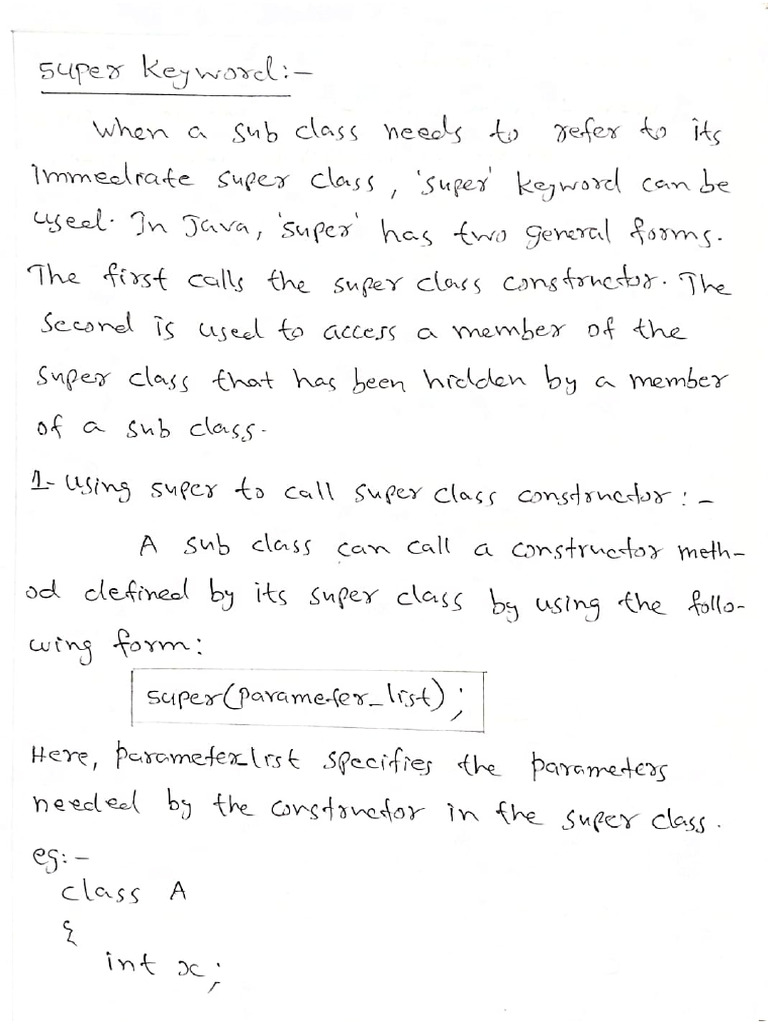 super keyword:-
When a sub class needs to refer to its
Immediate super class, 'super' keyword can be
used. In Java, 'super' has two general forms.
The first calls the super class constructor. The
Second is used to access a member of the
super class that has been hidden by a member
of a sub class.
1- Using super to call super class constructor:-
A sub class can call a constructor meth-
od defined by its super class by using the follo-
wing form:
super(parameter_list);
Here, parameter_list specifies the parameters
needed by the constructor in the super class.
eg:-
class A
{
int x;